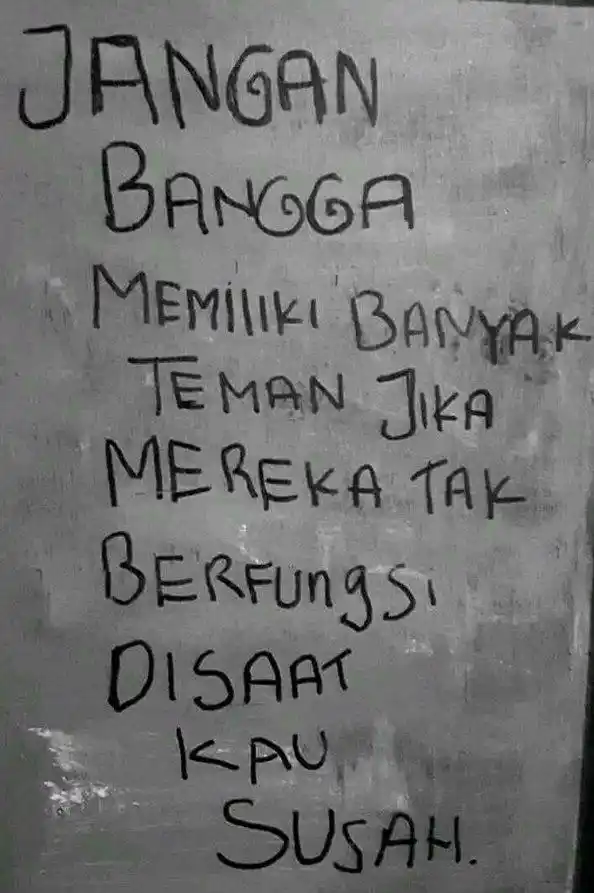 JANGAN
BANGGA
MEMILIKI BANYAK
TEMAN JIKA
MEREKA TAK
BERFUngSi
DISAAT
KAU
SUSAH.